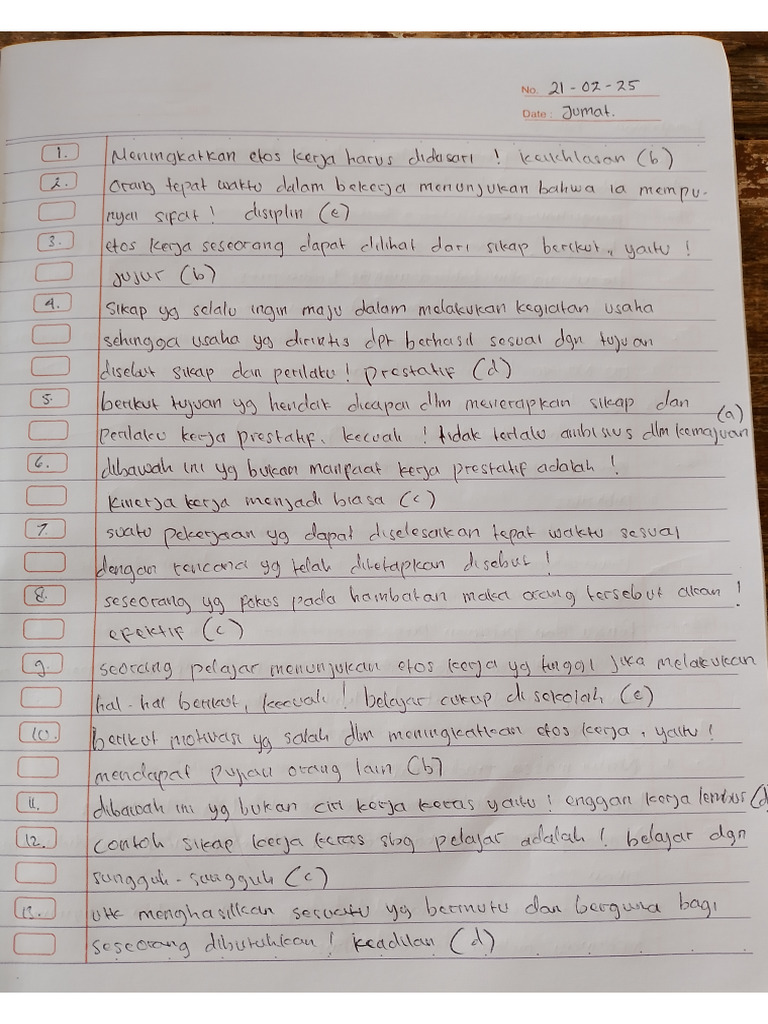 No. 21-02-25
Date : Jumat.
1. Meningkatkan etos kerja harus didasari ! keikhlasan (b)
2. Orang tepat waktu dalam bekerja menunjukan bahwa ia mempu-
nyai sifat ! disiplin (e)
3. etos kerja seseorang dapat dilihat dari sikap berikut, yaitu !
jujur (b)
4. Sikap yg selalu ingin maju dalam melakukan kegiatan usaha
sehingga usaha yg dirintis dpt berhasil sesuai dgn tujuan
disebut sikap dan perilaku ! prestatif (d)
5. berikut tujuan yg hendak dicapai dlm menerapkan sikap dan
perilaku kerja prestatif, kecuali ! tidak terlalu ambisius dlm kemajuan (a)
6. dibawah ini yg bukan manpaat kerja prestatif adalah !
kinerja kerja menjadi biasa (c)
7. suatu pekerjaan yg dapat diselesaikan tepat waktu sesuai
dengan rencana yg telah ditetapkan disebut !
8. seseorang yg fokus pada hambatan maka orang tersebut akan !
efektif (c)
9. seorang pelajar menunjukan etos kerja yg tinggi jika melakukan
hal-hal berikut, kecuali ! belajar cukup di sekolah (e)
10. berikut motivasi yg salah dlm meningkatkan etos kerja, yaitu !
mendapat pujian orang lain (b)
11. dibawah ini yg bukan ciri kerja keras yaitu ! enggan kerja lembur (d
12. contoh sikap kerja keras sbg pelajar adalah ! belajar dgn
sungguh-sungguh (c)
13. utk menghasilkan sesuatu yg bermutu dan berguna bagi
seseorang dibutuhkan ! keadilan (d)